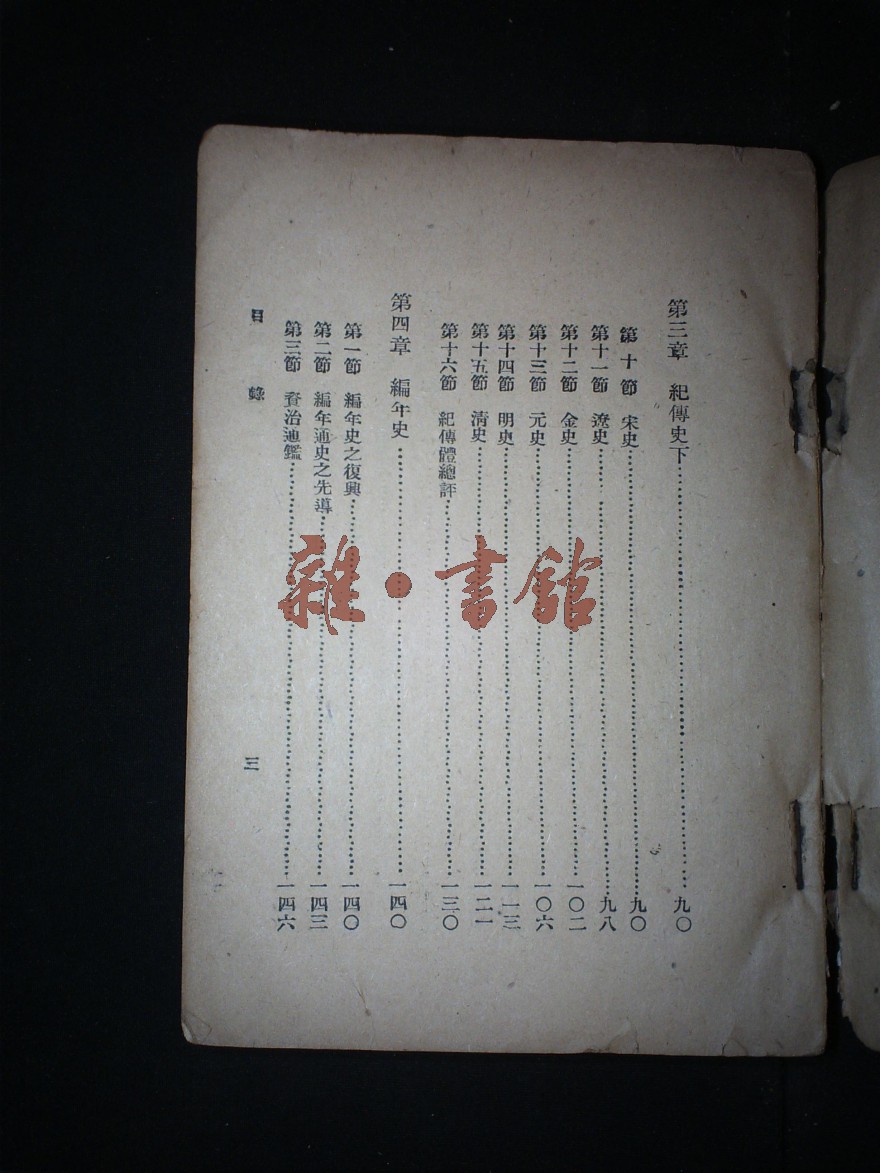 第三章 紀傳史下……九〇
第十節 宋史……九〇
第十一節 遼史……九八
第十二節 金史……一〇二
第十三節 元史……一〇六
第十四節 明史……一一三
第十五節 清史……一二一
第十六節 紀傳體總評……一三〇
第四章 編年史……一四〇
第一節 編年史之復興……一四〇
第二節 編年通史之先導……一四三
第三節 資治通鑑……一四六
目錄 三
雜·書館